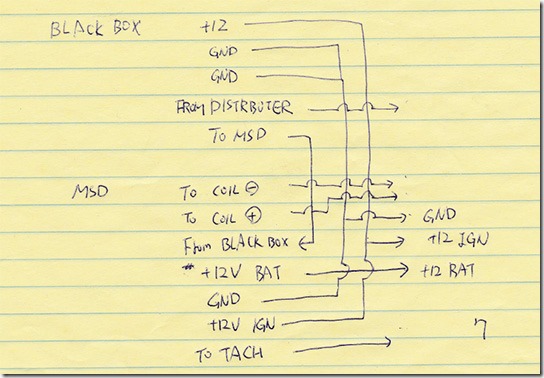 BLACK BOX +12
GND
GND
FROM DISTRBUTER
TO MSD
MSD TO COIL ⊖
TO COIL ⊕
GND
From BLACK BOX +12 IGN
* +12V BAT +12 BAT
GND
+12V IGN
7
TO TACH